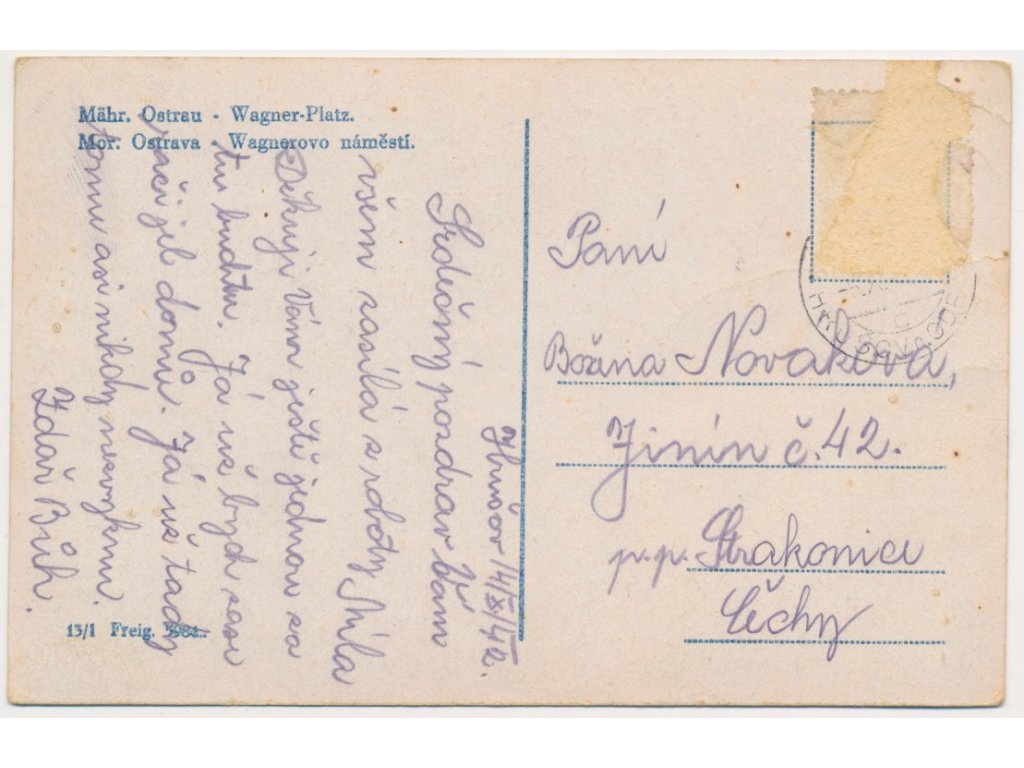 Mähr. Ostrau - Wagner-Platz.
Mor. Ostrava - Wagnerovo náměstí.
Hrušov 14/XI/42.
Srdečný pozdrav Vám
všem zasílá z roboty Míla
Děkuji Vám ještě jednou za
tu buchtu. Já už bych zase
radši jel domů. Já už tady
tomu asi nikdy nezvyknu.
Zdař Bůh.
13/1 Freig. 5984.
Paní
Božina Novaková,
Jinín č. 42.
p.p. Strakonice
Čechy